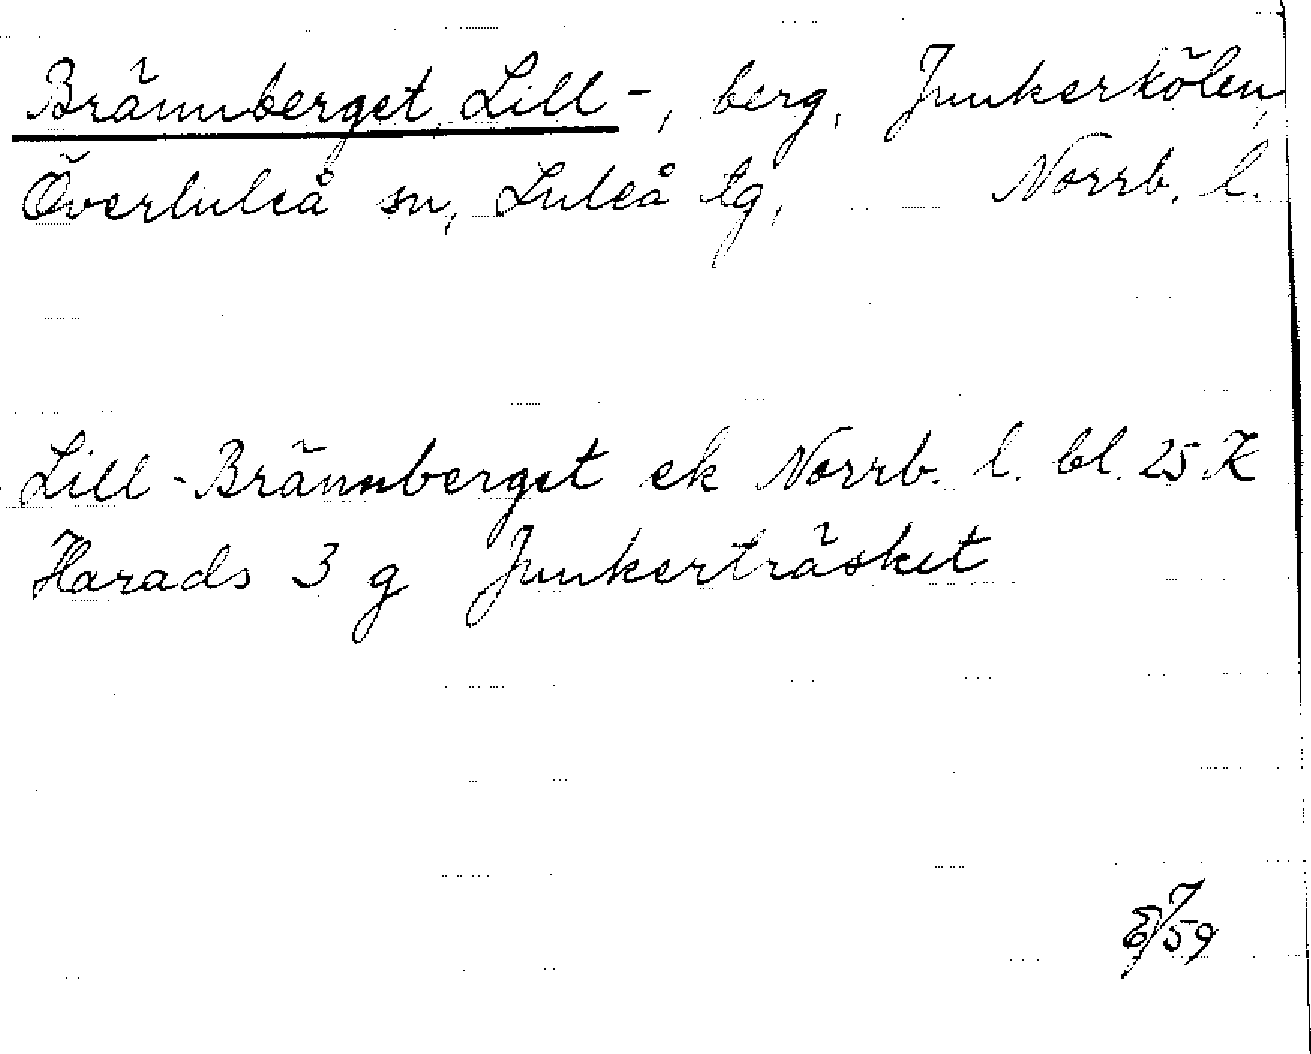 Brännberget, Lill-, berg, Junkerkölen,
Överluleå sn, Luleå tg, Norrb. l.
Lill-Brännberget ek Norrb. l. bl. 25 K
Harads 3 g Junkerträsket
7/59